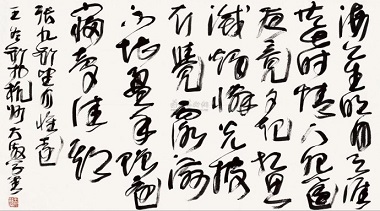 海上生明月天涯
共此时情人怨遥
夜竟夕起相思
灭烛怜光披
衣觉露滋
不堪盈手赠还
寝梦佳期
张九龄望月怀远